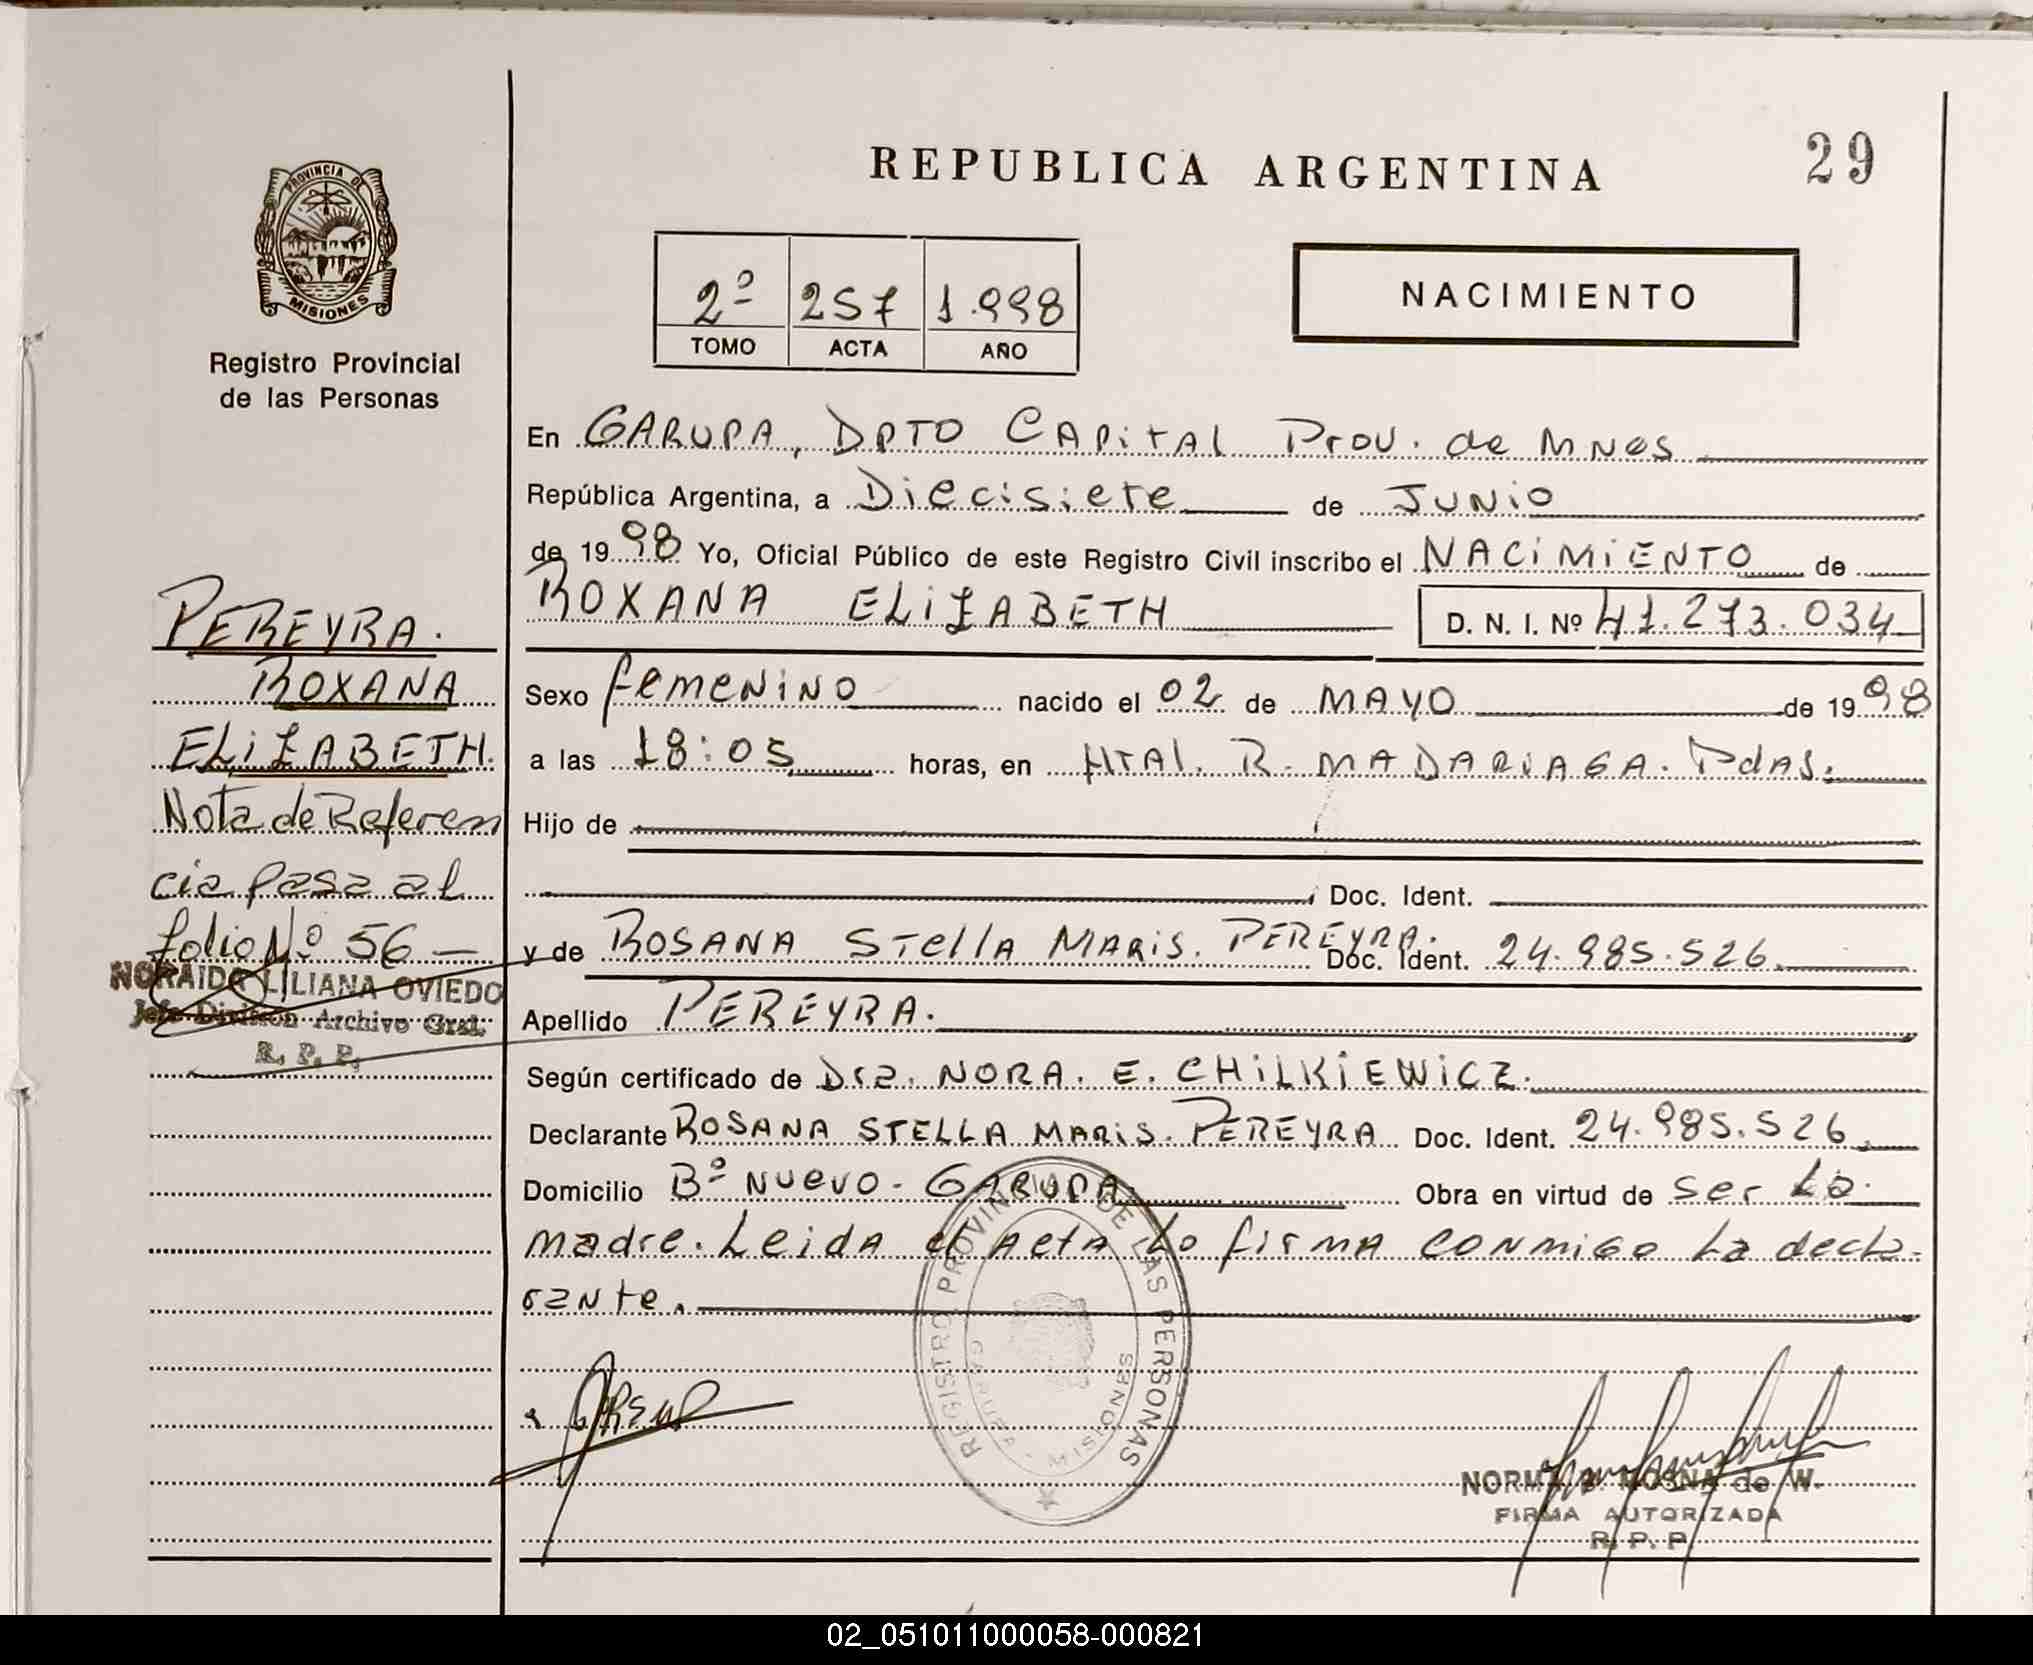 REPUBLICA ARGENTINA
29
PROVINCIA DE
MISIONES
Registro Provincial
de las Personas
2º 257 1.998
TOMO ACTA AÑO
NACIMIENTO
En GARUPA, DPTO CAPITAL Prov. de MNES
República Argentina, a Diecisiete de JUNIO
de 1998 Yo, Oficial Público de este Registro Civil inscribo el NACIMIENTO de
ROXANA ELIZABETH D. N. I. Nº 41.273.034
Sexo femenino nacido el 02 de MAYO de 1998
a las 18:05 horas, en Htal. R. MADARIAGA. Pdas.
Hijo de
Doc. Ident.
y de ROSANA Stella MARIS. PEREYRA. Doc. Ident. 24.985.526.
Apellido PEREYRA.
Según certificado de Dra. NORA. E. CHILKIEWICZ.
Declarante ROSANA STELLA MARIS. PEREYRA Doc. Ident. 24.985.526.
Domicilio Bº NUEVO - GARUPA Obra en virtud de ser La
madre. Leida el Acta Lo firma conmigo La decla-
rante.
PEREYRA.
ROXANA
ELIZABETH.
Nota de Referen
cia pasa al
folio Nº 56 -
NORAIDA LILIANA OVIEDO
Jefe Division Archivo Gral.
R. P. P.
REGISTRO PROVINCIAL DE LAS PERSONAS
GARUPA - MISIONES
de W.
FIRMA AUTORIZADA
R. P. P.
02_051011000058-000821